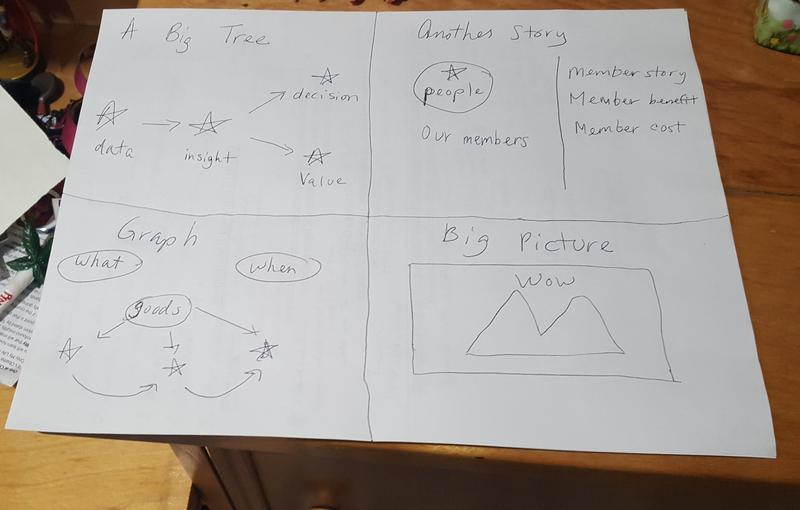 A Big Tree
decision
data
insight
Value
Another Story
people
Our members
Member story
Member benefit
Member cost
Graph
What
When
goods
Big Picture
Wow